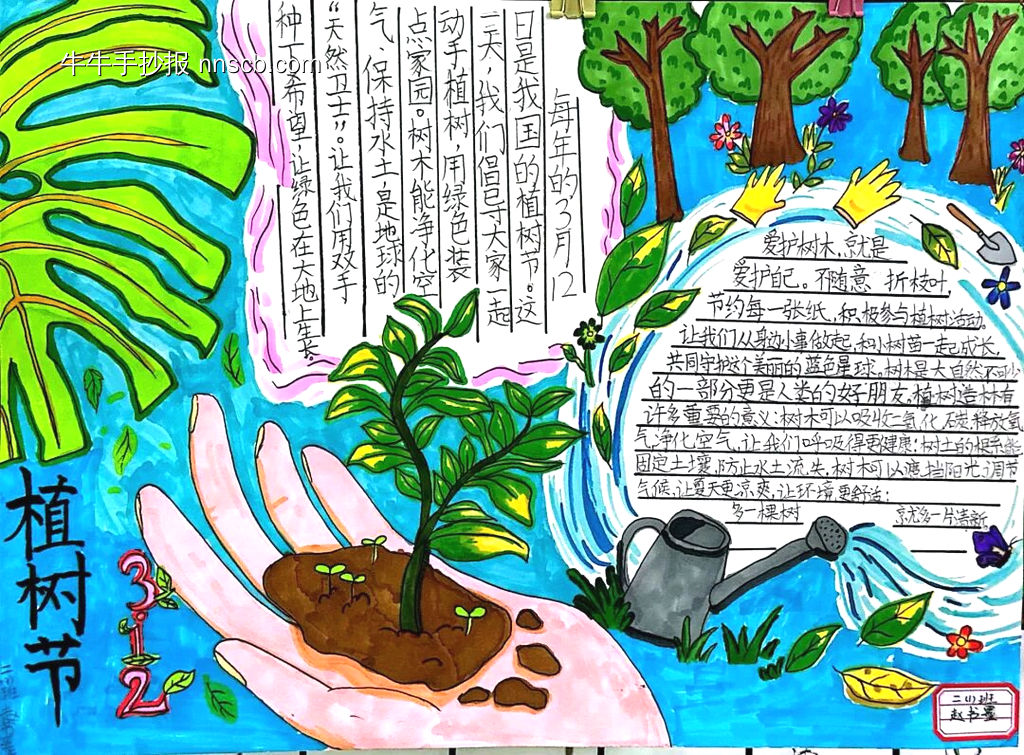 牛牛手抄报 nnscb.com
每年的3月12
日是我国的植树节。这
一天，我们倡导大家一起
动手植树，用绿色装
点家园。树木能净化空
气、保持水土，是地球的
“天然卫士”。让我们用双手
种下希望，让绿色在大地上生长。
爱护树木，就是
爱护自己。不随意 折枝叶，
节约每一张纸，积极参与植树活动。
让我们从身边小事做起，和小树苗一起成长，
共同守护这个美丽的蓝色星球。树木是大自然不可少
的一部分更是人类的好朋友，植树造林有
许多重要的意义：树木可以吸收二氧化碳，释放氧
气，净化空气，让我们呼吸得更健康；树土的根系能
固定土壤，防止水土流失，树木可以遮挡阳光，调节
气候，让夏天更凉爽，让环境更舒适；
多一棵树 就多一片清新
植树节
3.12
二(1)班
赵书墨